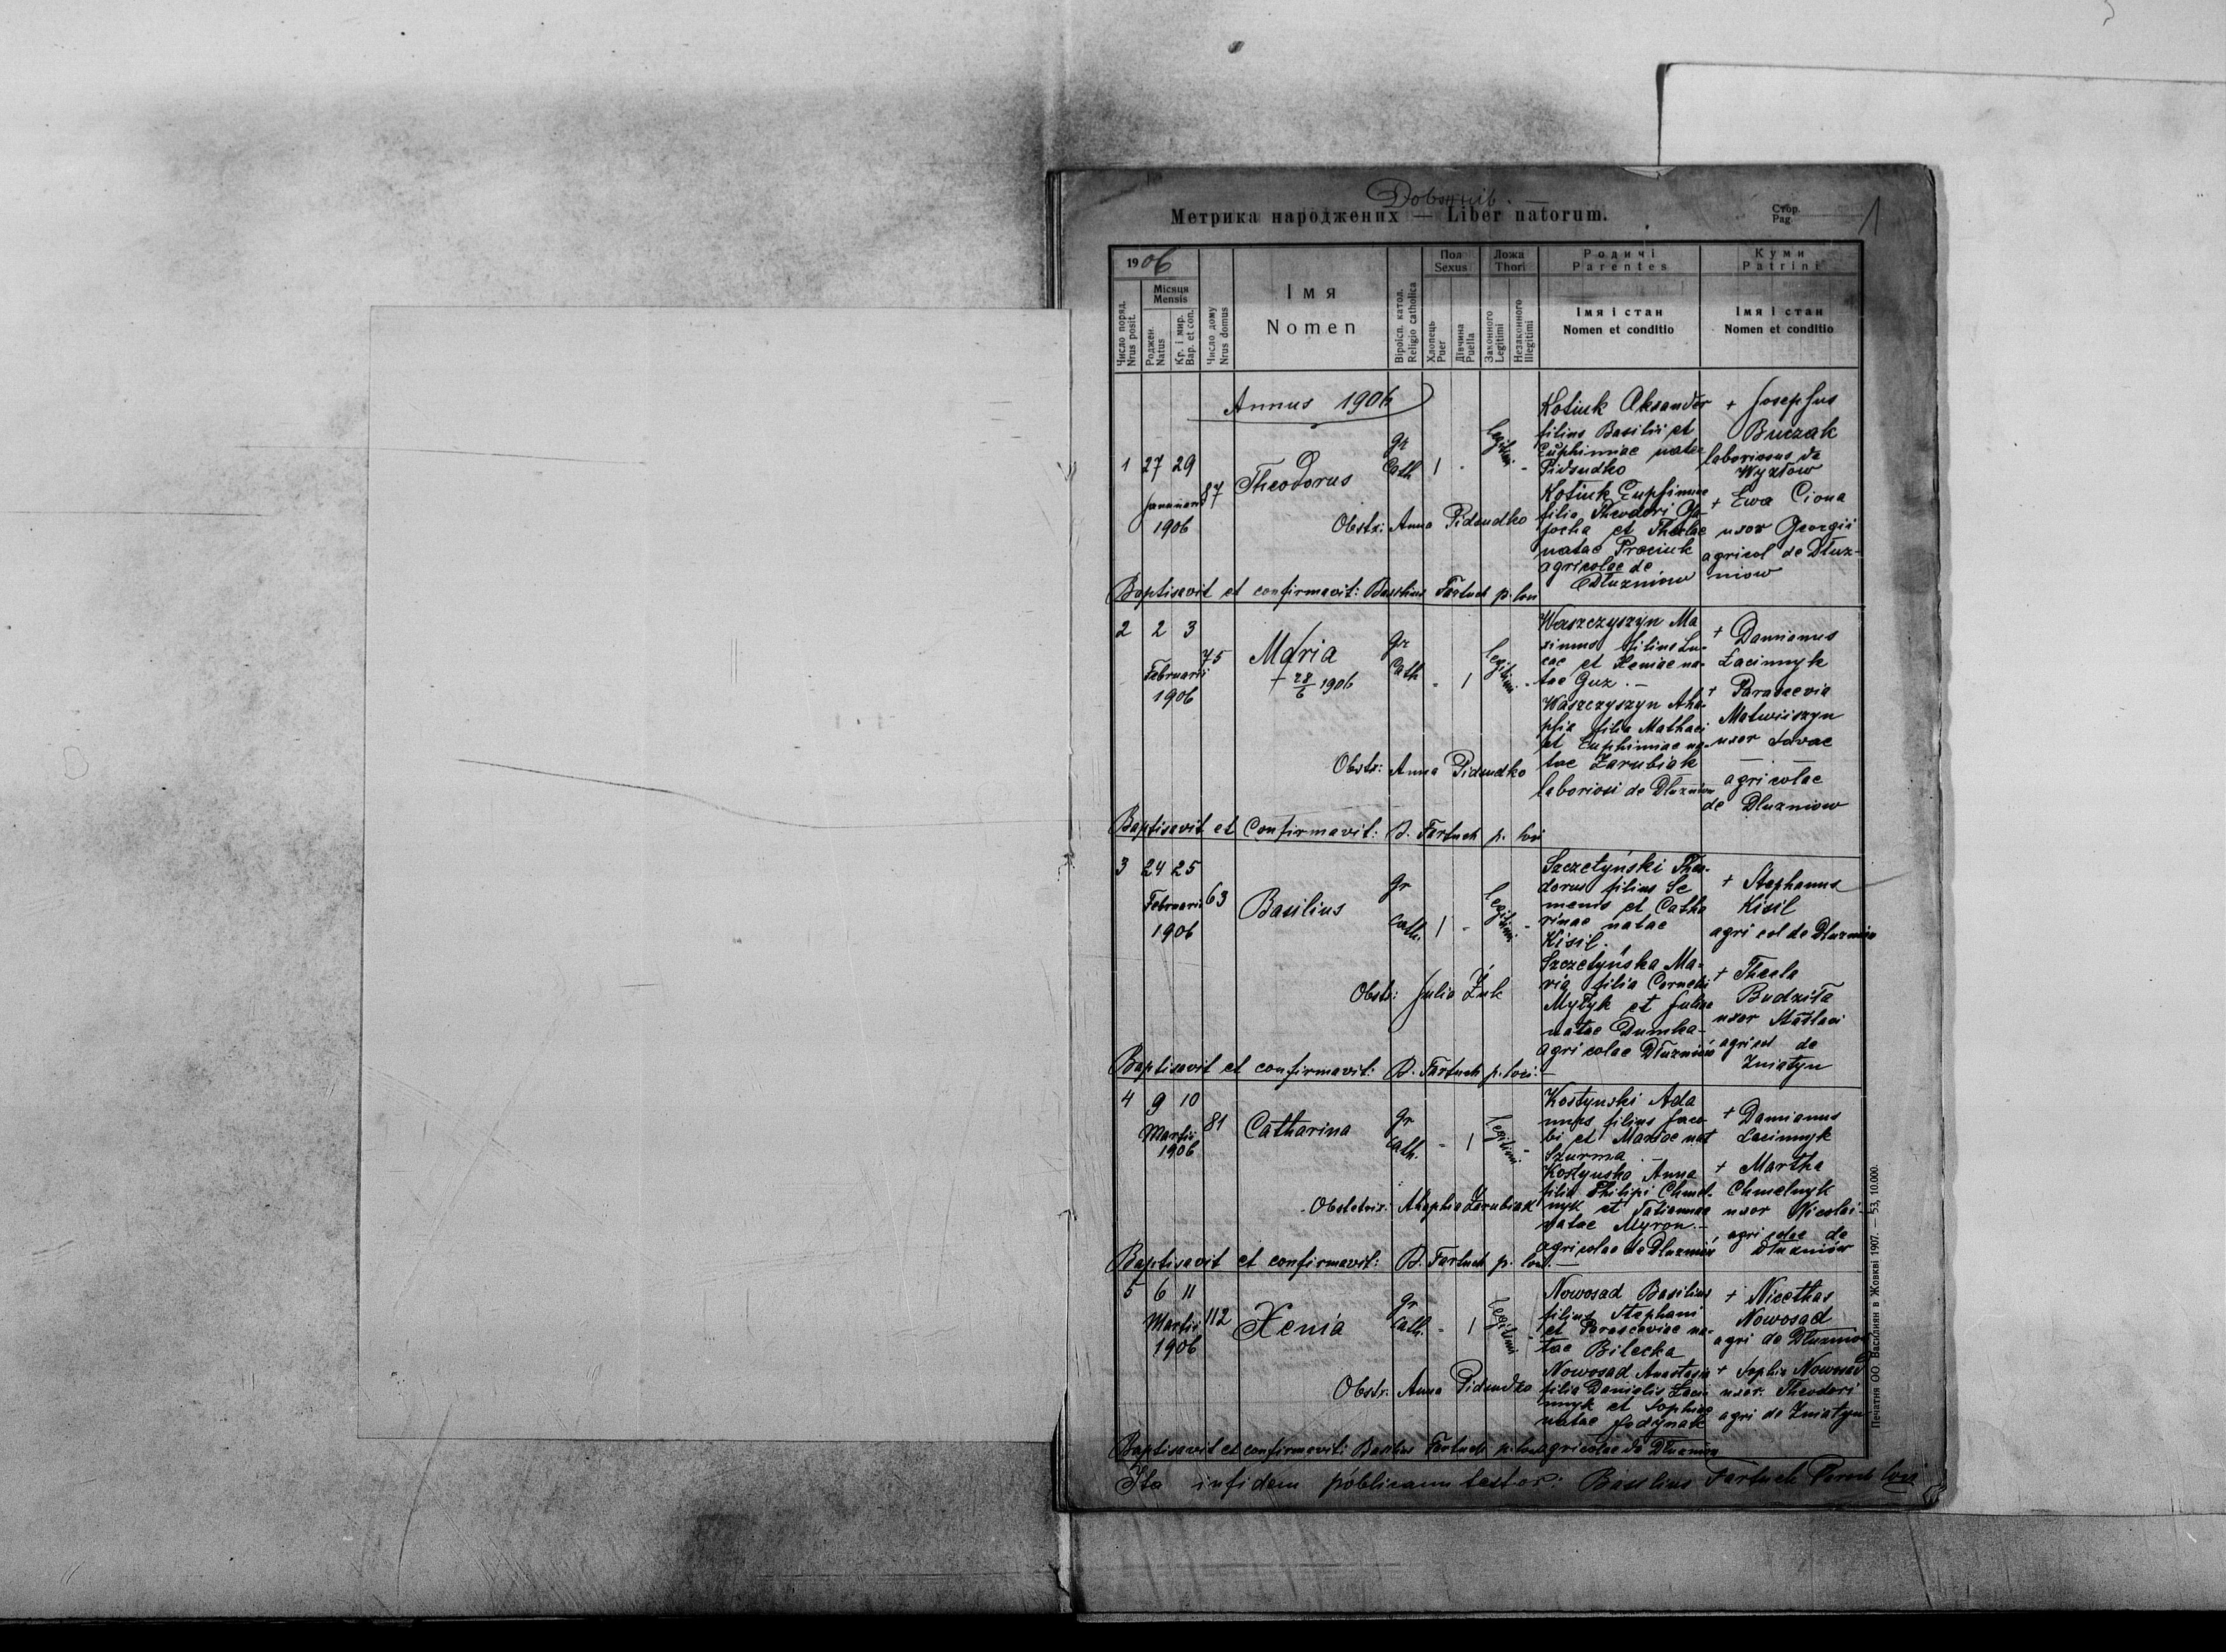 Метрика народжених — Liber natorum.
Стор.
Pag.
1
1906
Число поряд.
Nrus posit.
Місяця
Mensis
Роджен.
Natus
Кр. і мир.
Bap. et con.
Число дому
Nrus domus
Імя
Nomen
Віроісп. катол.
Religio catholica
Пол
Sexus
Хлопець
Puer
Дівчина
Puella
Ложа
Thori
Законного
Legitimi
Незаконного
Illegitimi
Родичі
Parentes
Імя і стан
Nomen et conditio
Куми
Patrini
Імя і стан
Nomen et conditio
Annus 1906
1 27 29
Januarii
1906
87
Theodorus
gr
Cath
1 -
legitimi -
Kotiuk Aksander
filius Basilii et
Euphimiae natae
Pidsudko
Kotiuk Euphimia
filia Theodori Ga-
jocha et Theclae
natae Prociuk
agricolae de
Dłuzniow
+ Josephus
Buczak
laboriosus de
Wyzłow
+ Ewa Ciona
uxor Georgii
agricol de Dłuz-
niow
Obstr: Anna Pidsudko
Baptisavit et confirmavit: Basilius Fartuch p. loci
2 2 3
Februarii
1906
75
Maria
+ 28/6 1906
gr
Cath
- 1
legitimi -
Waszczyszyn Ma
ximus filius Lu-
cae et Xeniae na-
tae Guz. -
Waszczyszyn Aha-
phia filia Mathaei
et Euphimiae na-
tae Zarubiak
laboriosi de Dłuzniow
+ Damianus
Łacinnyk
+ Parascevia
Matwiiszyn
uxor Savae
agricolae
de Dluzniow
Obstr: Anna Pidsudko
Baptisavit et Confirmavit: B. Fartuch p. loci
3 24 25
Februarii
1906
63
Basilius
gr
Cath.
1 -
legitimi -
Szczetyński Theo-
dorus filius Se
menis et Catha
rinae natae
Kisil.
Szczetyńska Ma-
ria filia Cornelii
Mytyk et Juliae
natae Dumka -
agricolae Dłuzniów
+ Stephanus
Kisil
agricol de Dluzniow
+ Thecla
Budziła
uxor
agricol de
Zniatyn
Obstr: Julia Żuk
Baptisavit et confirmavit: B. Fartuch p. loci. -
4 9 10
Martii
1906
81
Catharina
gr
Cath.
- 1
legitimi -
Kostynski Ada
mus filius Jaco-
bi et Mariae nat
Szurma. -
Kostynska Anna
filia Philipi Chmel-
nyk et Tatiannae
natae Myron. -
agricolae de Dluzniów
+ Damianus
Lacinnyk
+ Martha
Chmelnyk
uxor Nicolai -
agricolae de
Dłuzniów
Obstetrix: Ahaphia Zarubiak
Baptisavit et confirmavit: B. Fartuch p. loci. -
5 6 11
Martii
1906
112
Xenia
gr
Cath.
- 1
legitimi -
Nowosad Basilius
filius Stephani
et Parasceviae na-
tae Bilecka
Nowosad Anastasia
filia Danielis Laci
nnyk et Sophiae
natae Hodynak
agricolae de Dluzniow
+ Nicethas
Nowosad
agri de Dluzniow
+ Sophia Nowosad
uxor Theodori
agri de Zniatyn
Obstr. Anna Pidsudko
Baptisavit et confirmavit: Basilius Fartuch p. loci
Ita in fidem publicam testor: Basilius Fartuch Paroch loci
Печатня ОО. Василиян в Жовкві 1907. — 53, 10.000.